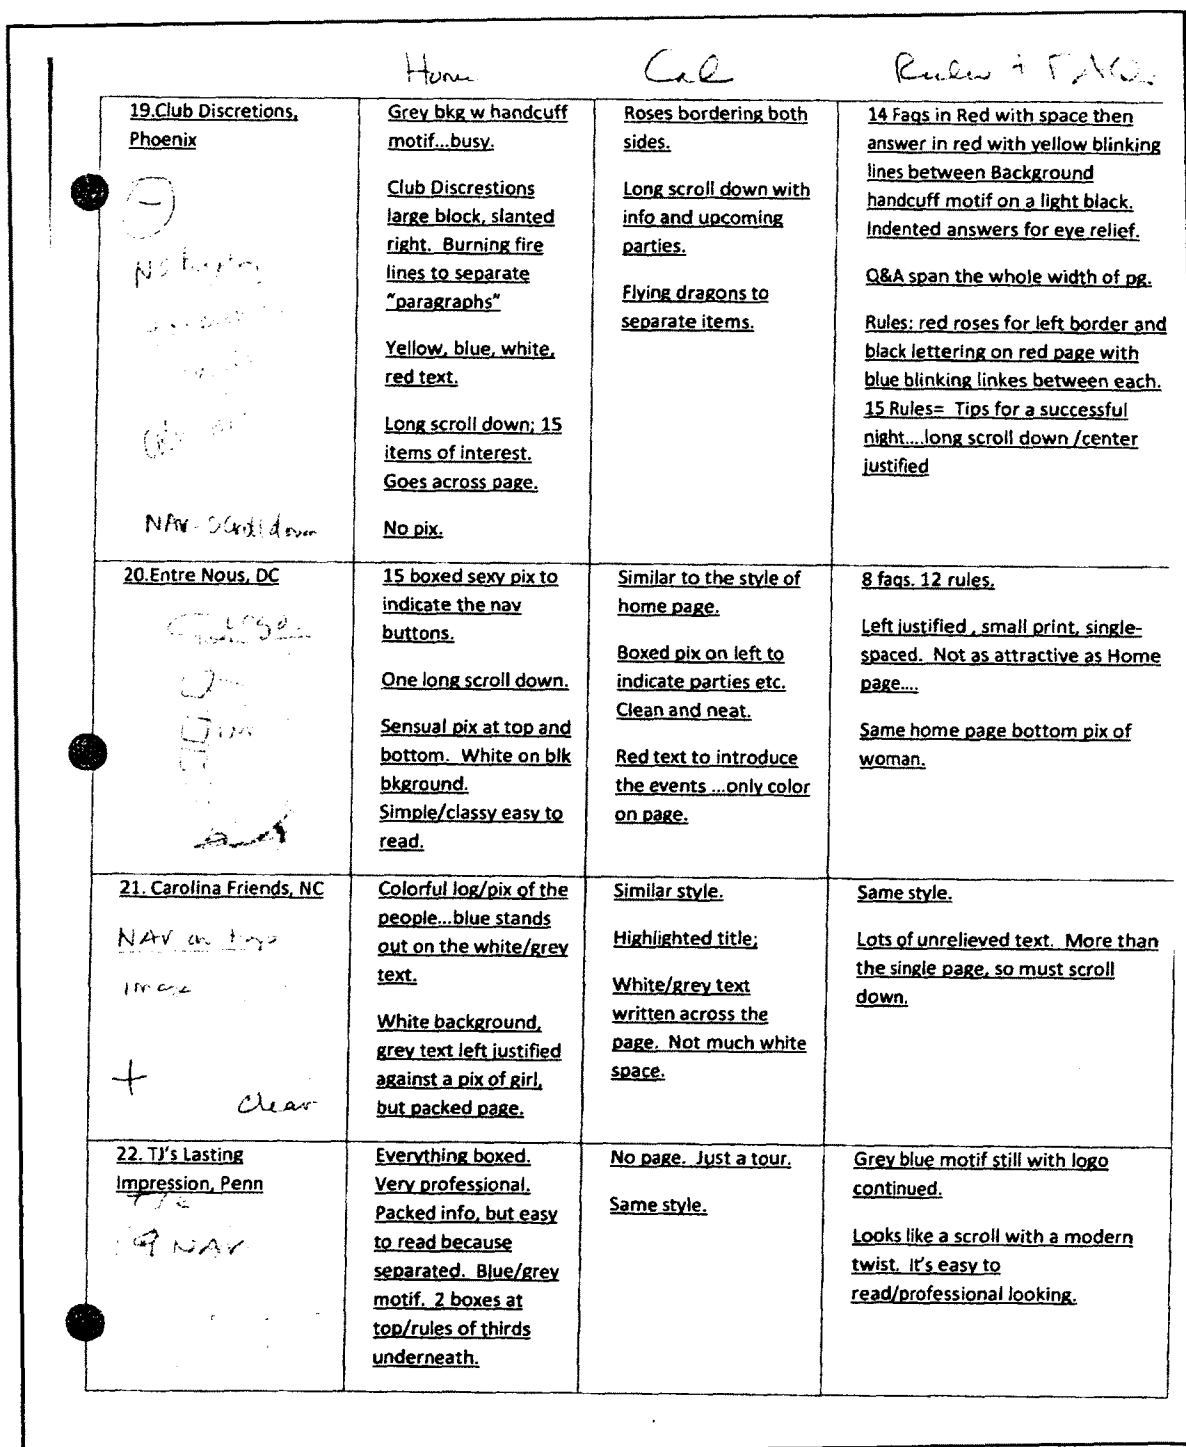 Home Cal Rules + FAQs
19.Club Discretions,
Phoenix
NAV- Scroll down
Grey bkg w handcuff
motif...busy.
Club Discrestions
large block, slanted
right. Burning fire
lines to separate
"paragraphs"
Yellow, blue, white,
red text.
Long scroll down; 15
items of interest.
Goes across page.
No pix.
Roses bordering both
sides.
Long scroll down with
info and upcoming
parties.
Flying dragons to
separate items.
14 Faqs in Red with space then
answer in red with yellow blinking
lines between Background
handcuff motif on a light black.
Indented answers for eye relief.
Q&A span the whole width of pg.
Rules: red roses for left border and
black lettering on red page with
blue blinking linkes between each.
15 Rules= Tips for a successful
night....long scroll down /center
justified
20.Entre Nous, DC
15 boxed sexy pix to
indicate the nav
buttons.
One long scroll down.
Sensual pix at top and
bottom. White on blk
bkground.
Simple/classy easy to
read.
Similar to the style of
home page.
Boxed pix on left to
indicate parties etc.
Clean and neat.
Red text to introduce
the events ...only color
on page.
8 faqs. 12 rules.
Left justified , small print, single-
spaced. Not as attractive as Home
page....
Same home page bottom pix of
woman.
21. Carolina Friends, NC
NAV on top
image
+
clear
Colorful log/pix of the
people...blue stands
out on the white/grey
text.
White background,
grey text left justified
against a pix of girl,
but packed page.
Similar style.
Highlighted title;
White/grey text
written across the
page. Not much white
space.
Same style.
Lots of unrelieved text. More than
the single page, so must scroll
down.
22. TJ's Lasting
Impression, Penn
9 NAV
Everything boxed.
Very professional.
Packed info, but easy
to read because
separated. Blue/grey
motif. 2 boxes at
top/rules of thirds
underneath.
No page. Just a tour.
Same style.
Grey blue motif still with logo
continued.
Looks like a scroll with a modern
twist. It's easy to
read/professional looking.